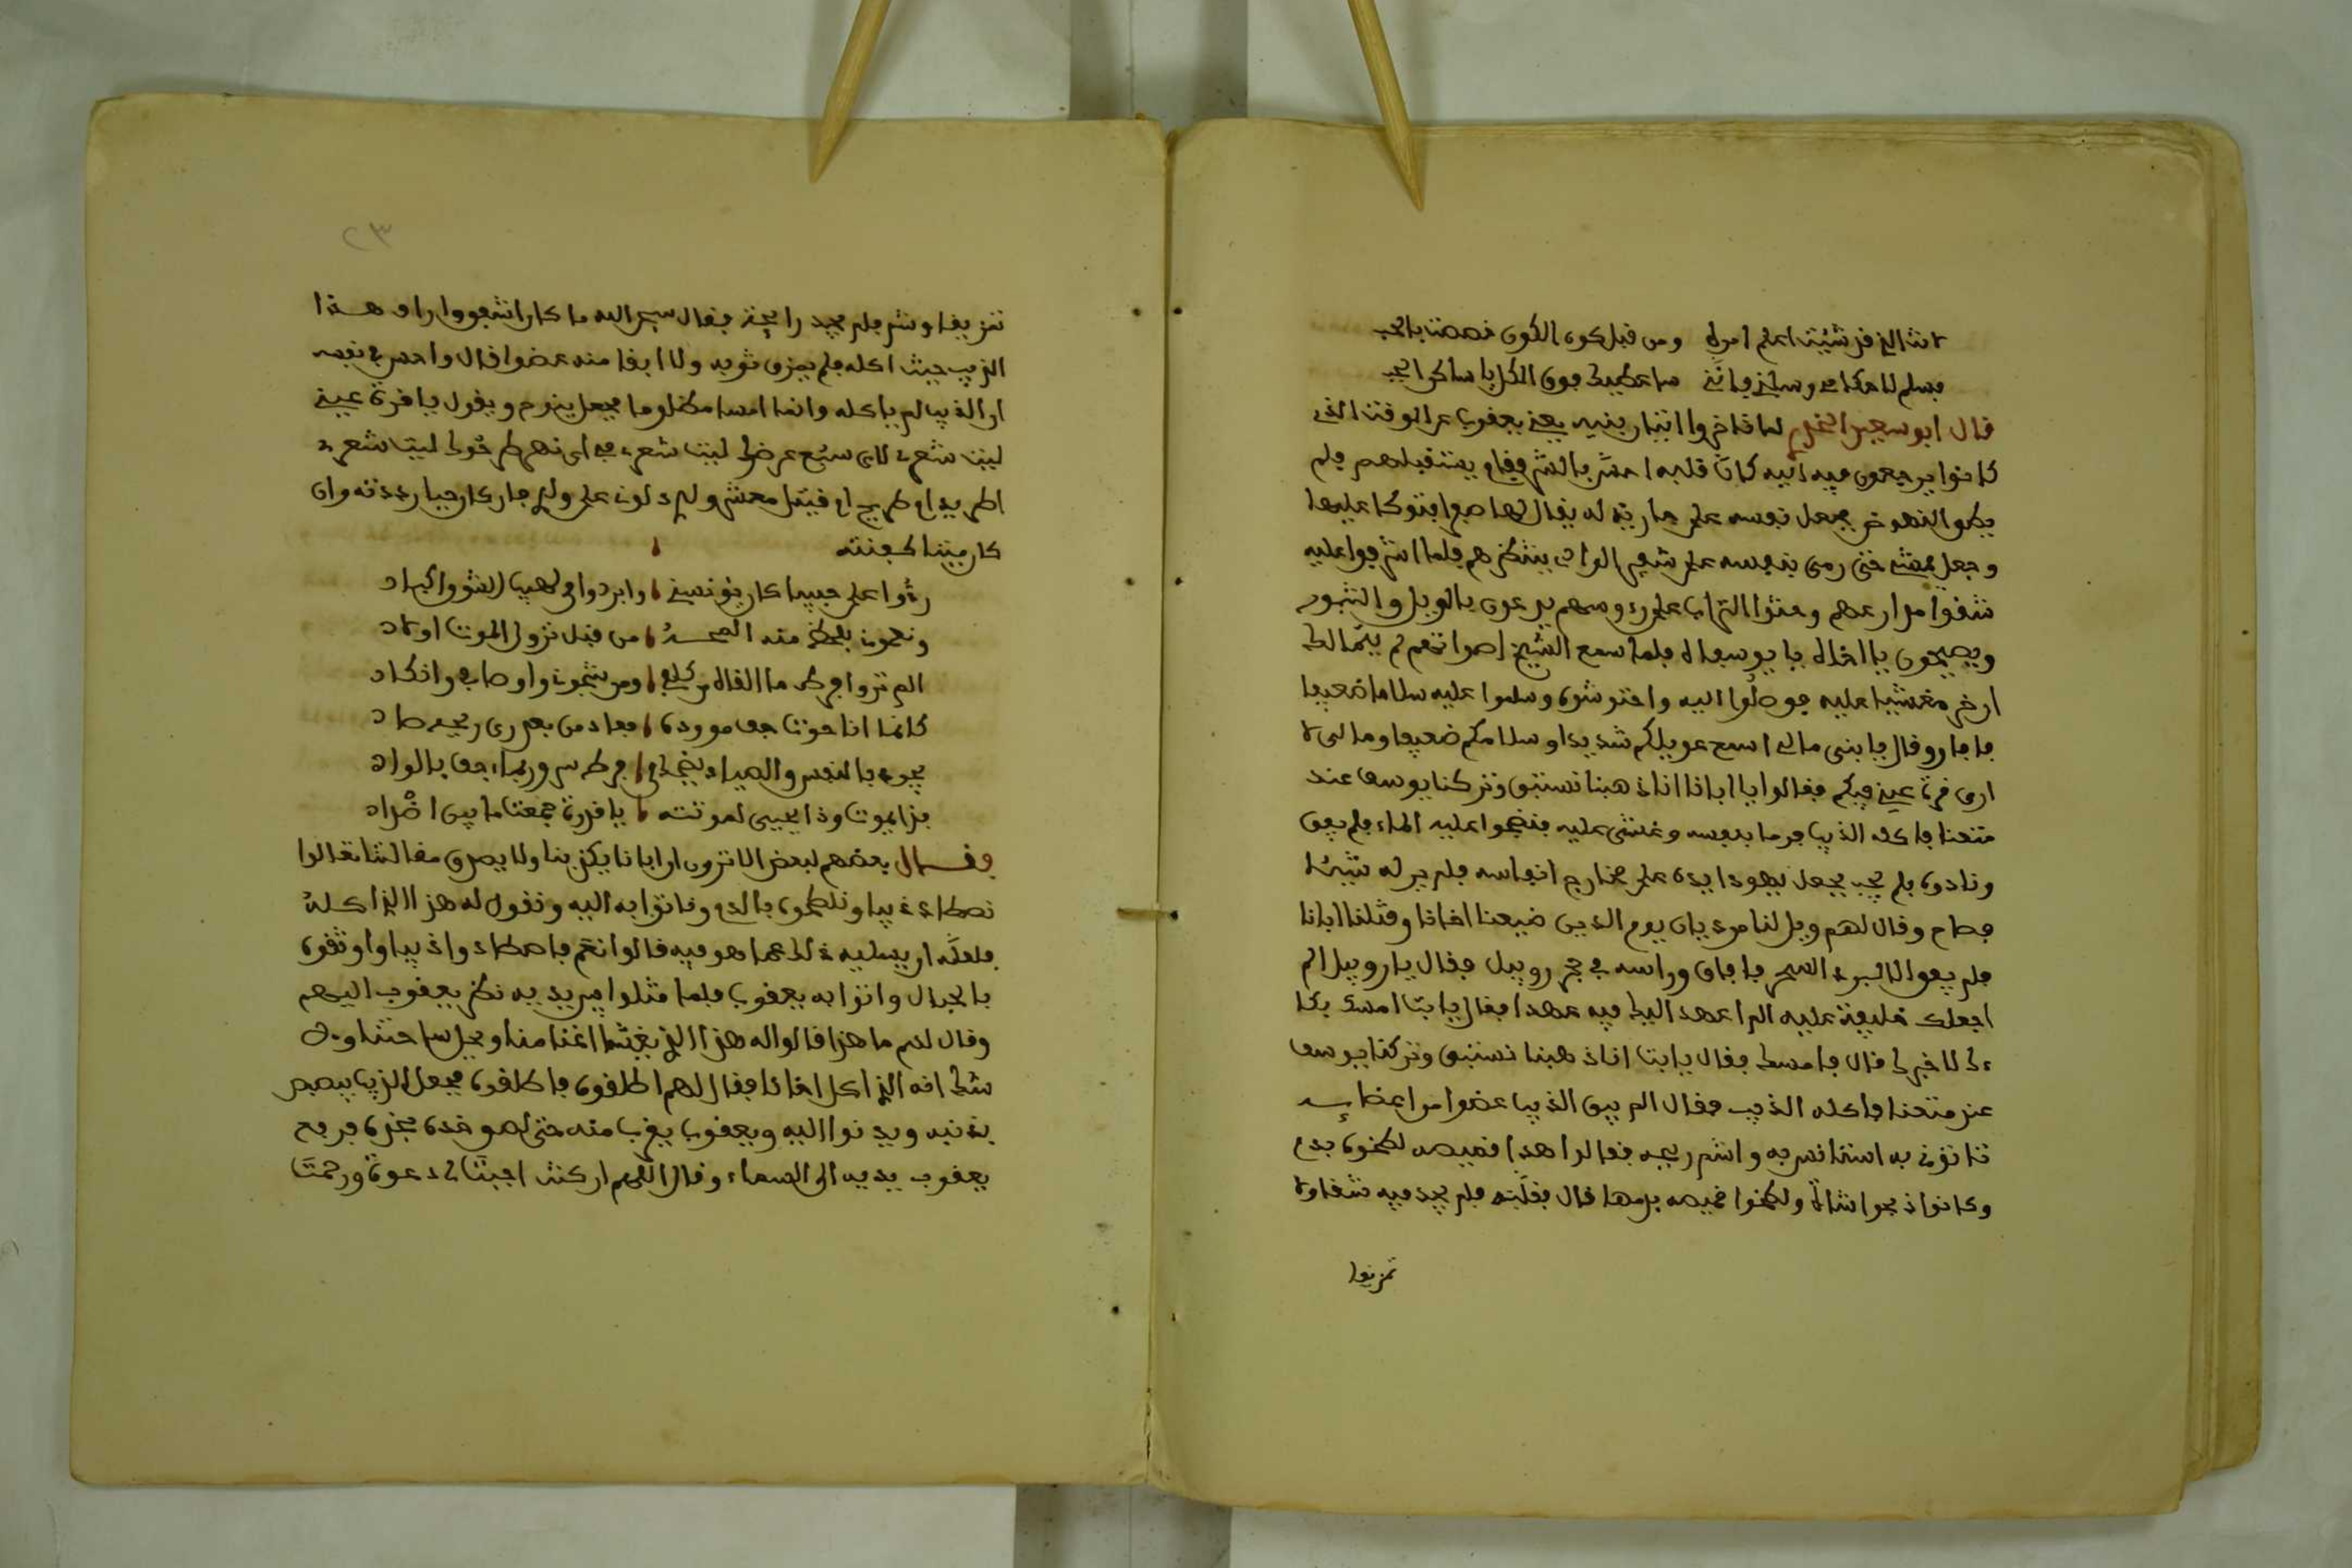 انت الذي قد شئت اعلم امره ومن قبل كون الكون خصصت بالحب
فسلم لاحكامي وسلني فانني ساعطيك فوق الكل يا ساكن الجب
قال ابو سعيد لما تاخروا ابناء بنيه يعني يعقوب عن الوقت الذي
كانوا يرجعون فيه اليه كان قلبه يستقبلهم فلم
يطق النهوض فجعل نفسه على جارية له يقال لها صفرا فتوكا عليها
وجعل يمشي حتى رمى بنفسه على شفير الوادي ينتظرهم فلما اشرفوا عليه
شقوا مدارعهم وحثوا التراب على رءوسهم يدعون بالويل والثبور
ويصيحون يا اخاه يا يوسفاه فلما سمع الشيخ اصواتهم لم يتمالك
ان خر مغشيا عليه فوصلوا اليه واحتوشوه وسلموا عليه سلاما ضعيفا
فافاق وقال يا بني ما لي اسمع عويلكم شديدا وسلامكم ضعيفا وما لي لا
ارى قرة عيني فيكم فقالوا يا ابانا انا ذهبنا نستبق وتركنا يوسف عند
متعنا فاكله الذيب فرما بنفسه وغشى عليه فنضحوا عليه الماء فلم يفق
ونادوه فلم يجب فجعل يهودا يده على مخارج انفاسه فلم ير له شيئا
فصاح وقال لهم ويل لنا من ديان يوم الدين ضيعنا اخانا وقتلنا ابانا
فلم يفق الا ببرد السحر فافاق وراسه في حجر روبيل فقال يا روبيل الم
اجعلك خليفة عليه الم اعهد اليك فيه عهدا فقال يا ابت امسك بكا
ءك لاخبرك قال فامسك فقال يا ابت انا ذهبنا نستبق وتركنا يوسف
عند متعنا فاكله الذيب فقال الم يبق الذيب عضوا من اعضايه
تاتوني به استانس به واشم ريحه فقالوا هذا قميصه لطخوه بدم
وكانوا ذبحوا شاة ولطخوا قميصه بدمها قال فقلبه فلم يجد فيه شقا ولا
تمزيقا
٢٣
تمزيقا وشم فلم يجد رايحة فقال سبحن الله ما كان اشفق وارأف هذا
الذيب حيث اكله فلم يمزق ثوبه ولا ابقا منه عضوا قال واحس في نفسه
ان الذيب لم ياكله وانما امسا مظلوما فجعل ينوح ويقول يا قرة عيني
ليت شعري لاي سبع عرضوك ليت شعري في اي نهر طرحوك ليت شعري
اطريدا ام طريح ام قتيلا ولدي دلوني على ولدي فان كان حيا رددته وان
كان ميتا كفنته
ردوا على حبيبا كان يونسني وابردوا لهيب الشوق اكباد
ونعموني بلحظ منه من قبل نزول الموت اولاد
الم تروا فرط ما القاه من كلفي ومن شجوني واوصابي وانكاد
كانما انا حوت جف مورده فعاد من بعد رى
يجود بالنفس والصياد فرط سرور يا جف بالواد
فذا يموت وذا يحيى لموتته يا قدرة جمعت ما بين اضداد
فقال بعضهم لبعض الا ترون ان ابانا يكذبنا ولا يصدق مقالتنا تعالوا
نصطاد ذيبا ونلطخوه بالدم وناتوا به اليه ونقول له هذا الذي اكله
فلعله ان يسليه ذلك عما هو فيه قالوا نعم فاصطادوا ذيبا واوثقوه
بالحبال واتوا به يعقوب فلما مثلوا بين يديه نظر يعقوب اليهم
وقال لهم ما هذا قالوا له هذا الذي اغنامنا ويحل ساحتنا ولا
شك انه الذي اكل اخانا فقال لهم اطلقوه فاطلقوه فجعل الذيب يبصبص
بذنبه ويدنوا اليه ويعقوب يقرب منه حتى لصق خده بخده فرفع
يعقوب يديه الى السماء وقال اللهم ان كنت اجبت لي دعوة ورحمت